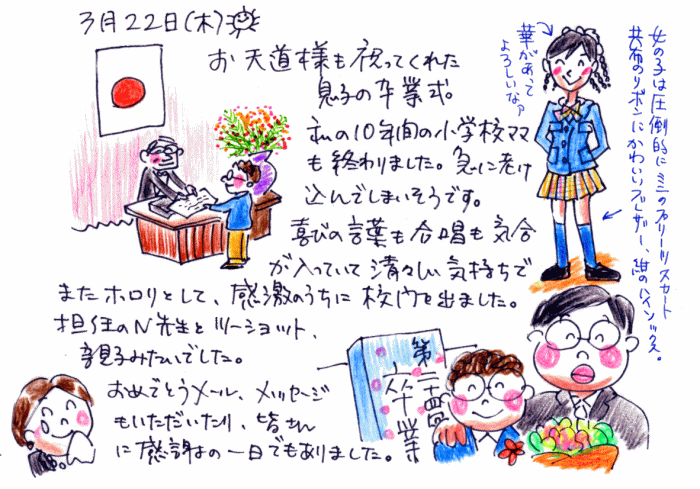 3月22日(木)
お天道様も祝ってくれた
息子の卒業式。
私の10年間の小学校ママ
も終わりました。急に老け
込んでしまいそうです。
喜びの言葉も合唱も気合
が入っていて清々しい気持ちで
またホロリとして、感激のうちに校門を出ました。
担任のN先生とツーショット、
親子みたいでした。
おめでとうメール、メッセージ
もいただいたり、皆さん
に感謝の一日でもありました。
華があって
よろしいなァ
女の子は圧倒的にミニのプリーツスカート
共布のリボンにかわいいブレザー、紺のハイソックス。
第
卒業